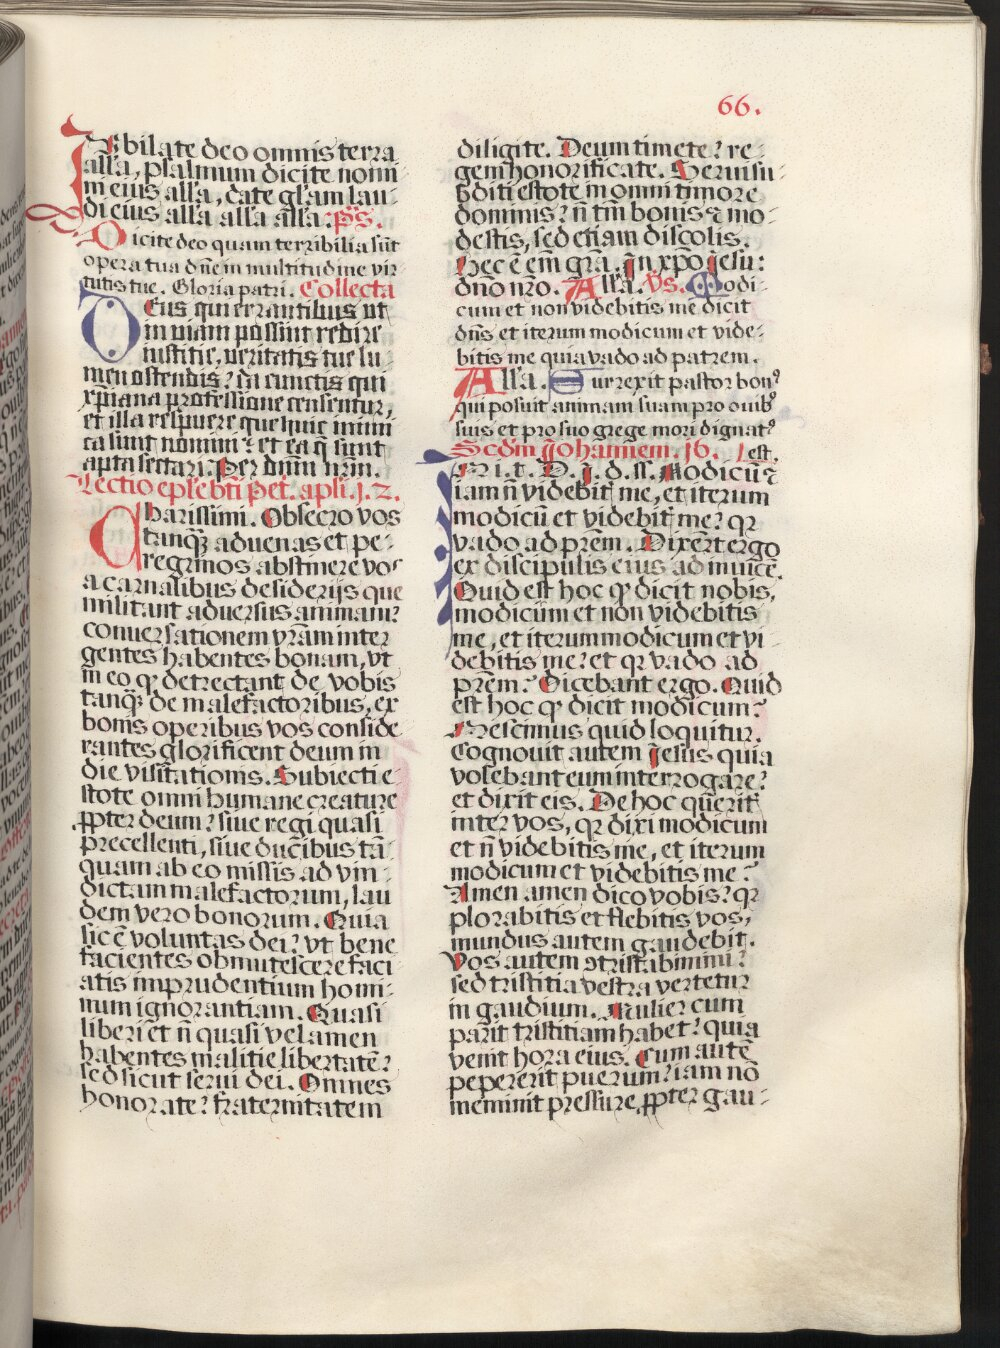 66.
Jubilate deo omnis terra
alla, psalmum dicite nomi-
ni eius alla, date glam lau-
di eius alla alla alla: ps.
Dicite deo quam terribilia sut
opera tua dne in multitudine vir
tutis tue. Gloria patri. Collecta
Deus qui errantibus ut
in viam possint redire
iustitie, veritatis tue lu-
men ostendis: da cunctis qui
xpiana professione censentur,
et illa respuere que huic inimi
ca sunt nomini: et ea q sunt
apta sectari. Per dnm nrm.
Lectio eple bti Pet. apli. j. 2.
Charissimi. Obsecro vos
tanq aduenas et pe-
regrinos abstinere vos
a carnalibus desiderijs que
militant aduersus animam:
conuersationem vram inter
gentes habentes bonam, vt
in eo q detrectant de vobis
tanq de malefactoribus, ex
bonis operibus vos conside-
rantes glorificent deum in
die visitationis. Subiecti e-
stote omni humane creature
ppter deum: siue regi quasi
precellenti, siue ducibus ta-
quam ab eo missis ad vin-
dictam malefactorum, lau
dem vero bonorum. Quia
sic e voluntas dei: vt bene
facientes obmutescere faci-
atis imprudentium homi-
num ignorantiam. Quasi
liberi et n quasi velamen
habentes malitie libertate:
sed sicut serui dei. Omnes
honorate: fraternitatem
diligite. Deum timete: re-
gem honorificate. Serui su-
bditi estote in omni timore
dominis: n tm bonis & mo-
destis, sed etiam discolis.
Hec e em gra. In xpo Jesu:
dno nro. Alla. Vs. Modi-
cum et non videbitis me dicit
dns et iterum modicum et vide-
bitis me quia vado ad patrem.
Alla. Surrexit pastor bon9
qui posuit animam suam pro ouib9
suis et pro suo grege mori dignat9
Scdm Johannem. 16. est.
In i. t. D. J. d. ss. Modicu &
iam n videbit me, et iterum
modicu et videbit me: qr
vado ad prem. Dixert ergo
ex discipulis eius ad inuice.
Quid est hoc q dicit nobis,
modicum et non videbitis
me, et iterum modicum et vi-
debitis me: et qr vado ad
prem: Dicebant ergo. Quid
est hoc q dicit modicum:
Nescimus quid loquitur.
Cognouit autem Jesus quia
volebant eum interrogare:
et dixit eis. De hoc querit
inter vos, qr dixi modicum
et n videbitis me, et iterum
modicum et videbitis me:
Amen amen dico vobis: qr
plorabitis et flebitis vos,
mundus autem gaudebit.
Vos autem 9tristabimini:
sed tristitia vestra vertetur
in gaudium. Mulier cum
parit tristitiam habet: quia
venit hora eius. Cum aute
pepererit puerum: iam no
meminit pressure, ppter gau-